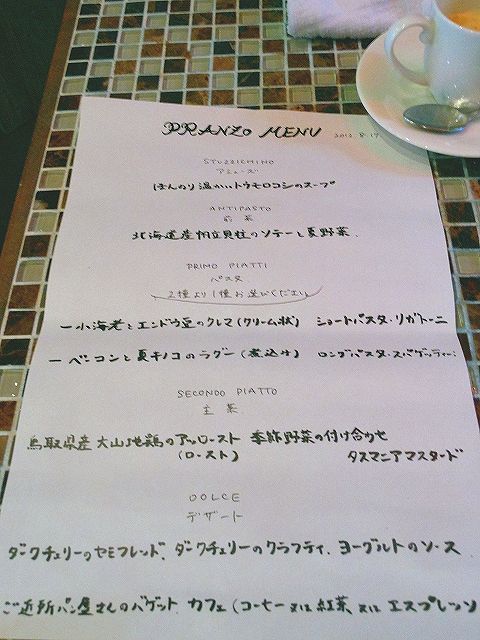 PRANZO MENU 2012.8.17.
STUZZICHINO
アミューズ
ほんのり温かいトウモロコシのスープ
ANTIPASTO
前菜
北海道産帆立貝柱のソテーと夏野菜.
PRIMO PIATTI
パスタ
2種より1種お選びください
ー小海老とエンドウ豆のクレマ(クリーム状) ショートパスタ・リガトーニ
ーベーコンと夏キノコのラグー(煮込み) ロングパスタ・スパゲッティーニ
SECONDO PIATTO
主菜
鳥取県産大山地鶏のアッロースト 季節野菜の付け合わせ
(ロースト) タスマニアマスタード
DOLCE
デザート
ダークチェリーのセミフレッド、ダークチェリーのクラフティ、ヨーグルトのソース
ご近所パン屋さんのバゲット カフェ(コーヒー又は紅茶又はエスプレッソ